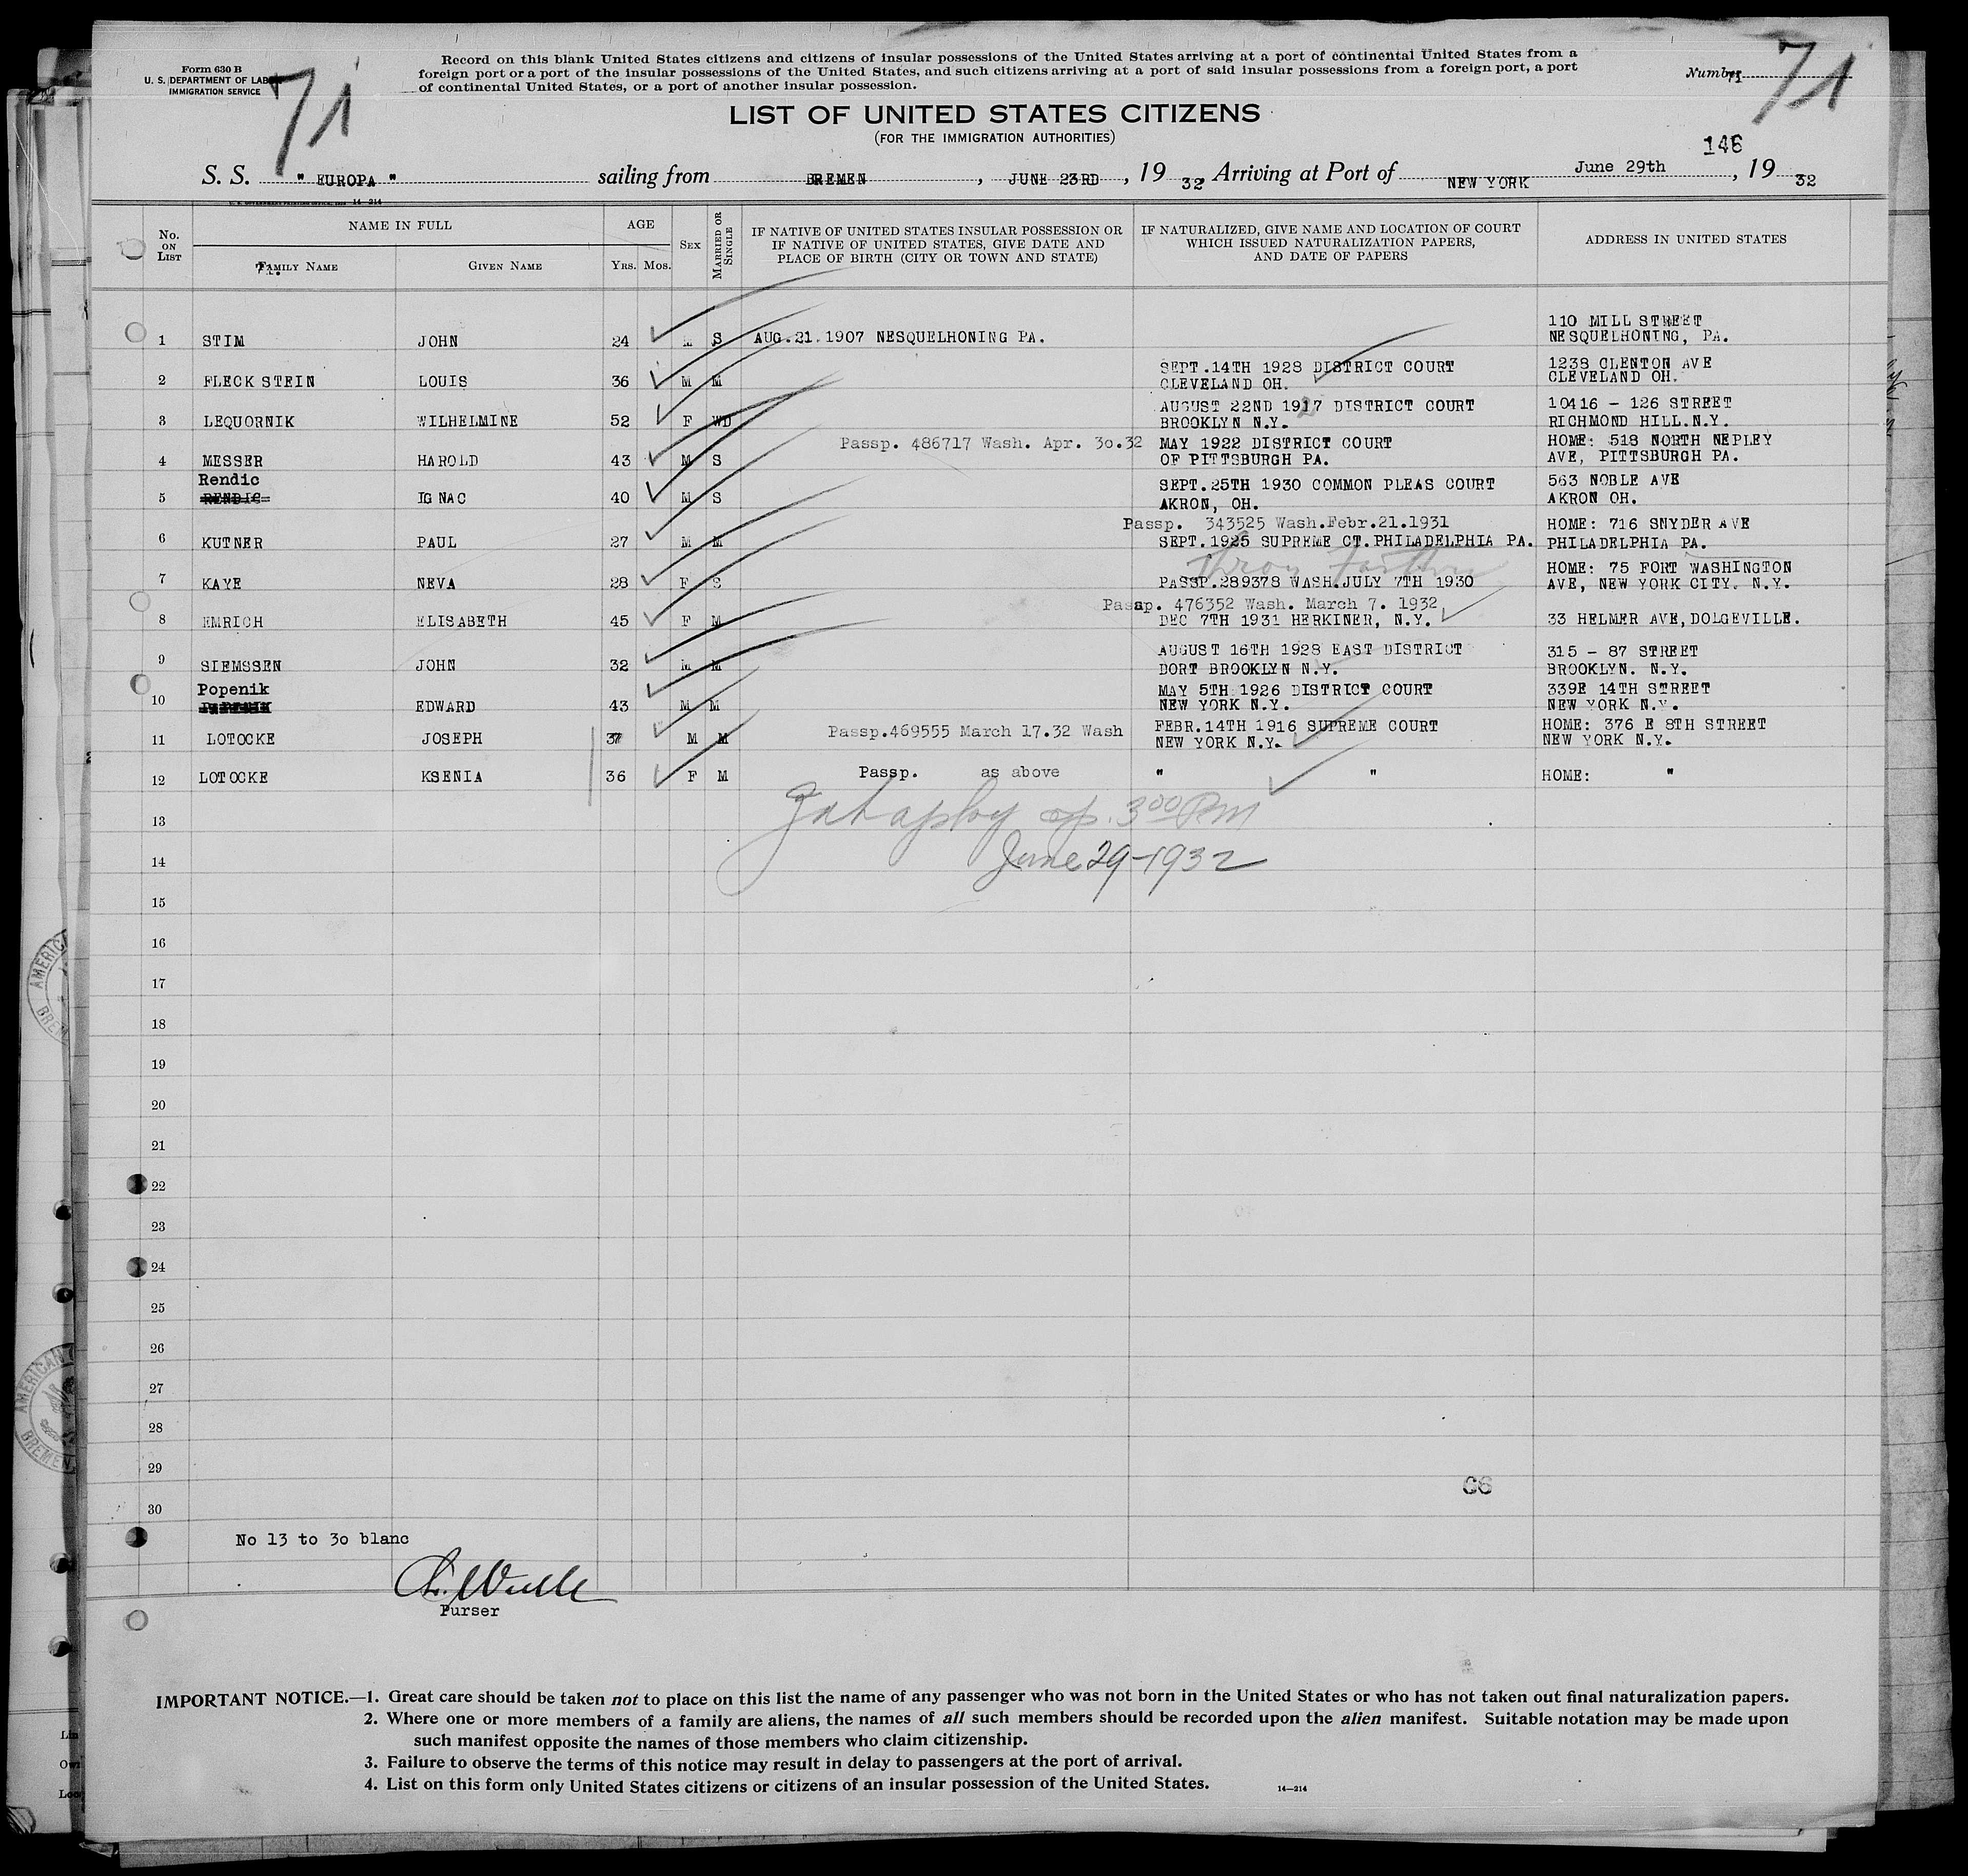 Form 630 B
U. S. DEPARTMENT OF LABOR
IMMIGRATION SERVICE
71
Record on this blank United States citizens and citizens of insular possessions of the United States arriving at a port of continental United States from a
foreign port or a port of the insular possessions of the United States, and such citizens arriving at a port of said insular possessions from a foreign port, a port
of continental United States, or a port of another insular possession.
Number 71
71
LIST OF UNITED STATES CITIZENS
(FOR THE IMMIGRATION AUTHORITIES)
146
S. S. "EUROPA" sailing from BREMEN, JUNE 23RD, 19 32, Arriving at Port of NEW YORK June 29th, 19 32
No. ON LIST
NAME IN FULL
FAMILY NAME
GIVEN NAME
AGE
YRS. MOS.
SEX
MARRIED OR SINGLE
IF NATIVE OF UNITED STATES INSULAR POSSESSION OR
IF NATIVE OF UNITED STATES, GIVE DATE AND
PLACE OF BIRTH (CITY OR TOWN AND STATE)
IF NATURALIZED, GIVE NAME AND LOCATION OF COURT
WHICH ISSUED NATURALIZATION PAPERS,
AND DATE OF PAPERS
ADDRESS IN UNITED STATES
110 MILL STREET
1 STIM JOHN 24 M S AUG.21.1907 NESQUELHONING PA. NESQUELHONING, PA.
SEPT.14TH 1928 DISTRICT COURT 1238 CLENTON AVE
2 FLECK STEIN LOUIS 36 M M CLEVELAND OH. CLEVELAND OH.
AUGUST 22ND 1917 DISTRICT COURT 10416 - 126 STREET
3 LEQUORNIK WILHELMINE 52 F WD BROOKLYN N.Y. RICHMOND HILL.N.Y.
Passp. 486717 Wash. Apr. 3o.32 MAY 1922 DISTRICT COURT HOME: 518 NORTH NEPLEY
4 MESSER HAROLD 43 M S OF PITTSBURGH PA. AVE, PITTSBURGH PA.
Rendic SEPT.25TH 1930 COMMON PLEAS COURT 563 NOBLE AVE
5 RENDIC IGNAC 40 M S AKRON, OH. AKRON OH.
Passp. 343525 Wash.Febr.21.1931 HOME: 716 SNYDER AVE
6 KUTNER PAUL 27 M M SEPT.1926 SUPREME CT.PHILADELPHIA PA. PHILADELPHIA PA.
HOME: 75 FORT WASHINGTON
7 KAYE NEVA 28 F S PASSP.289378 WASH.JULY 7TH 1930 AVE, NEW YORK CITY. N.Y.
Passp. 476352 Wash. March 7. 1932
8 EMRICH ELISABETH 45 F M DEC 7TH 1931 HERKINER, N.Y. 33 HELMER AVE,DOLGEVILLE.
AUGUST 16TH 1928 EAST DISTRICT 315 - 87 STREET
9 SIEMSSEN JOHN 32 M M DORT BROOKLYN N.Y. BROOKLYN. N.Y.
Popenik MAY 5TH 1926 DISTRICT COURT 339E 14TH STREET
10 EDWARD 43 M M NEW YORK N.Y. NEW YORK N.Y.
Passp.469555 March 17.32 Wash FEBR.14TH 1916 SUPREME COURT HOME: 376 E 8TH STREET
11 LOTOCKE JOSEPH 37 M M NEW YORK N.Y. NEW YORK N.Y.
12 LOTOCKE KSENIA 36 F M Passp. as above " " HOME: "
13
3 00 PM
14
June 29-1932
15
16
17
18
19
20
21
22
23
24
25
26
27
28
29
C6
30
No 13 to 3o blanc
Purser
IMPORTANT NOTICE.—1. Great care should be taken not to place on this list the name of any passenger who was not born in the United States or who has not taken out final naturalization papers.
2. Where one or more members of a family are aliens, the names of all such members should be recorded upon the alien manifest. Suitable notation may be made upon
such manifest opposite the names of those members who claim citizenship.
3. Failure to observe the terms of this notice may result in delay to passengers at the port of arrival.
4. List on this form only United States citizens or citizens of an insular possession of the United States.
14—214